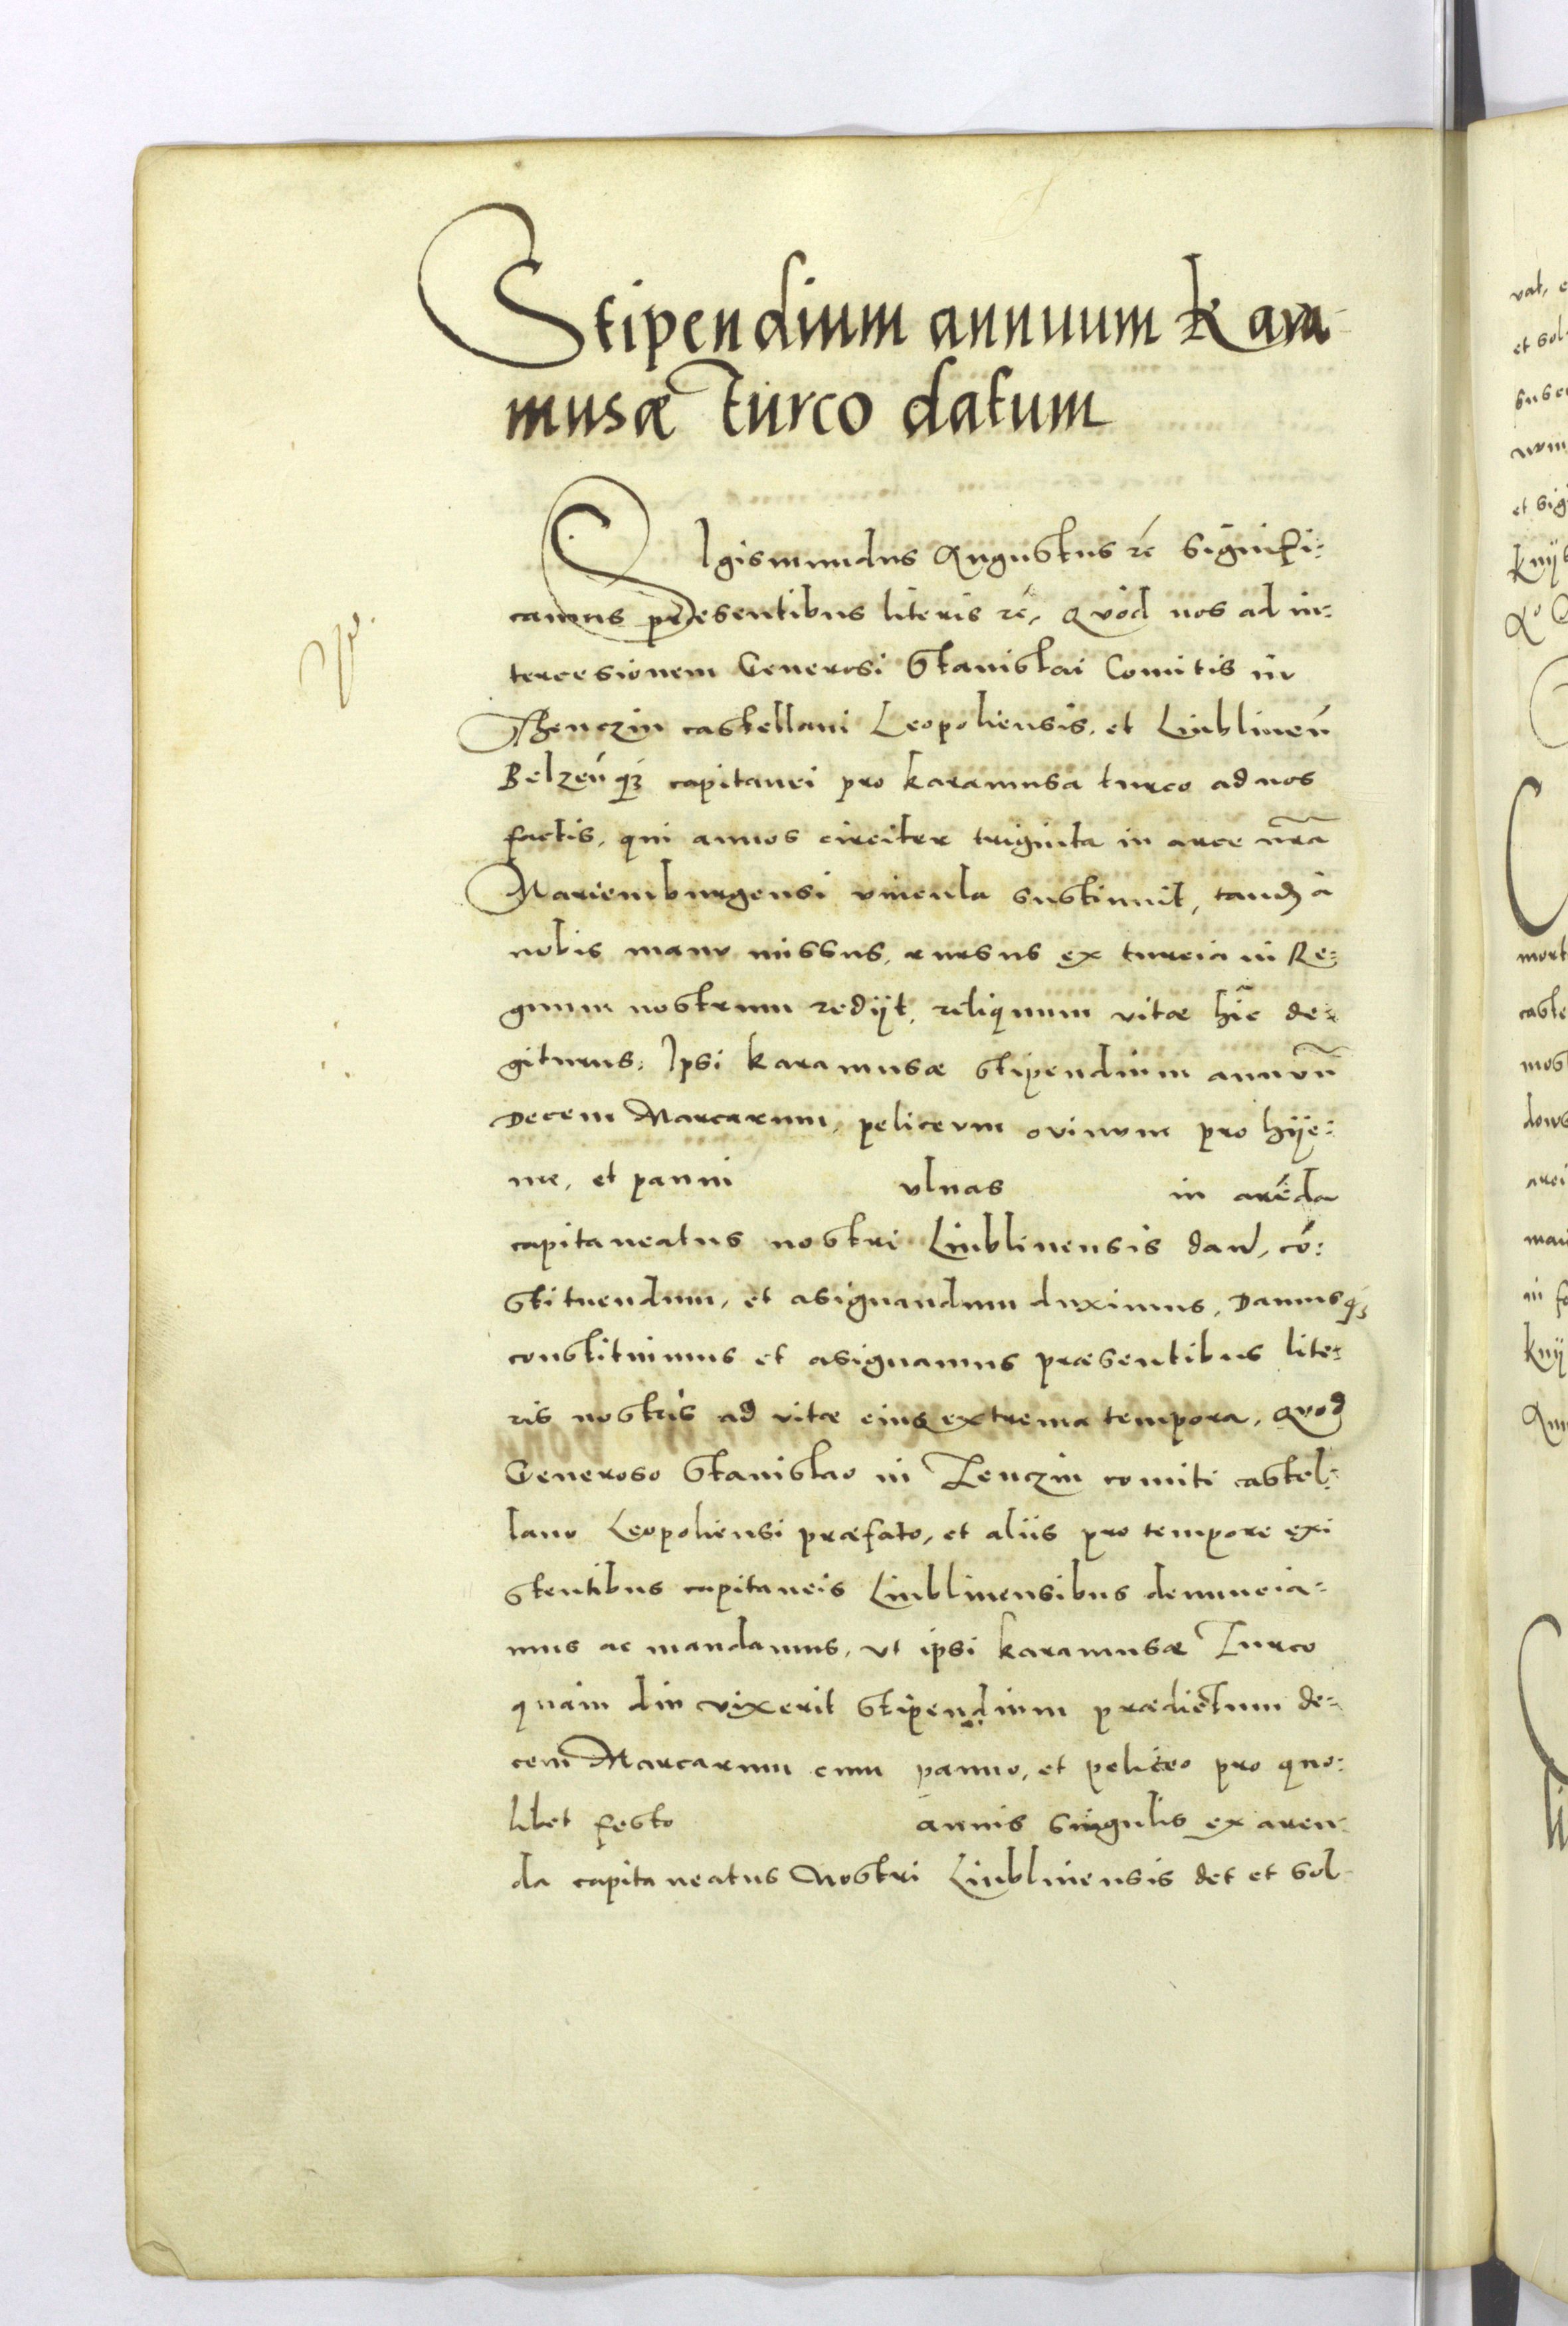 Stipendium annuum Kara-
musæ Turco datum
SIgismundus Augustus rc̄ Signifi:
camus præsentibus literis rc̄, Quód nos ad in:
tercesionem Generosi Stanislai Comitis in
Thenczin castellani Leopoliensis, et Liublineń
Belzeńq₃ capitanei pro karamusa turco ad nos
factis, qui annos circiter triginta in arce nr̃a
Mariemburgensi vincula sustinuit, tandȝ à
nobis manu missus, rursus ex turcia in Re:
gnum nostrum redijt, reliquum vitæ hîc de:
giturus, Ipsi karamusæ stipendium annuū
Decem Marcarum, peliceum ovinum pro hije:
me, et panni ulnas in arēda
capitaneatus nostri Liublinensis dand, cō:
stituendum, et asignandum duximus, Damusq₃
constituimus et asignamus præsentibus lite:
ris nostris ad vitæ eius extrema tempora, Quod
Generoso Stanislao in Tenczin comiti castel:
lano Leopoliensi præfato, et aliis pro tempore exi
stentibus capitaneis Liublinensibus denuncia:
mus ac mandamus, ut ipsi karamusæ Turco
quàm diu vixerit stipendium prædictum de:
cem Marcarum cum panno, et peliceo pro quo:
libet festo annis singulis ex aren:
da capitaneatus Nostri Liublinensis det et sol-
val, e
et sol
susc
nom
et sig
knijs
mort
caste
mos
dows
arci
man
in fe
knij
Ann